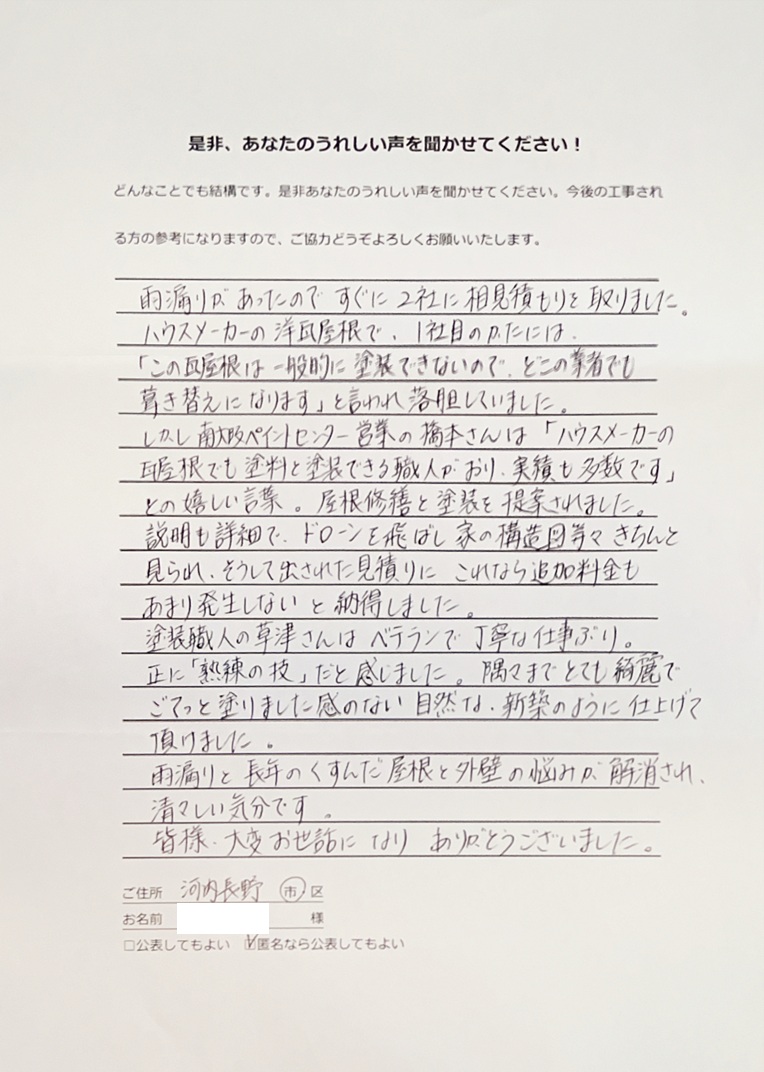 是非、あなたのうれしい声を聞かせてください！
どんなことでも結構です。是非あなたのうれしい声を聞かせてください。今後の工事され
る方の参考になりますので、ご協力どうぞよろしくお願いいたします。
雨漏りがあったので すぐに 2社に 相見積もりを 取りました。
ハウスメーカーの 洋瓦屋根で、1社目のかたには、
「この瓦屋根は 一般的に 塗装できないので、どこの業者でも
葺き替えになります」と言われ 落胆していました。
しかし 南大阪ペイントセンター 営業の 橋本さんは 「ハウスメーカーの
瓦屋根でも 塗料と塗装できる職人がおり、実績も 多数です」
との 嬉しい言葉。屋根修繕と塗装を 提案されました。
説明も詳細で、ドローンを飛ばし 家の構造図等々 きちんと
見られ、そうして出された見積りに これなら追加料金も
あまり発生しない と 納得しました。
塗装職人の草津さんは ベテランで 丁寧な仕事ぶり。
正に「熟練の技」だと 感じました。隅々までとても 綺麗で
ごてっと塗りました感のない 自然な、新築のように 仕上げて
頂けました。
雨漏りと 長年のくすんだ 屋根と外壁の悩みが 解消され、
清々しい気分です。
皆様、大変お世話になり ありがとうございました。
ご住所 河内長野 市・区
お名前 様
□公表してもよい ☑匿名なら公表してもよい